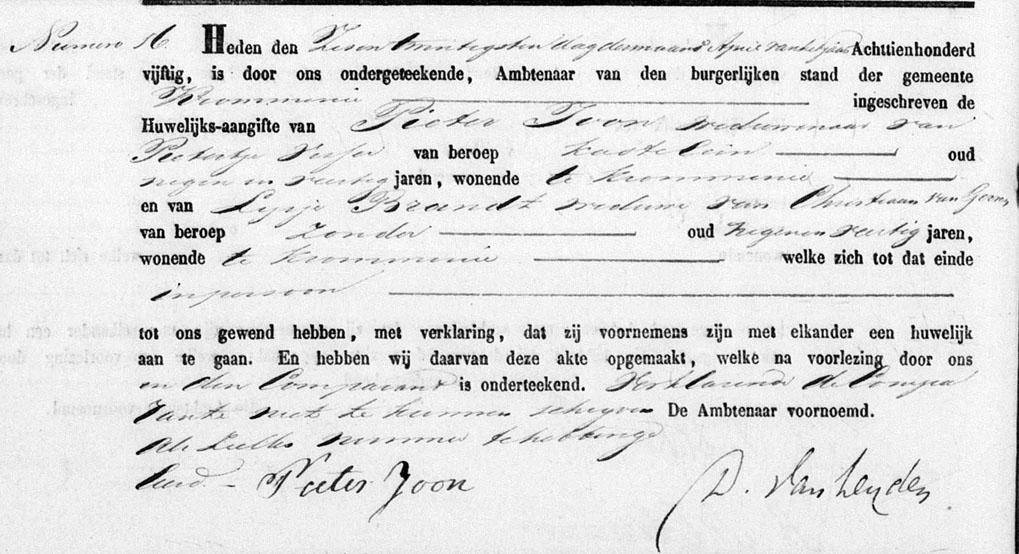 Numero 16. Heden den Zesentwintigsten dag der maand April van het jaar Achttienhonderd
vijftig, is door ons ondergeteekende, Ambtenaar van den burgerlijken stand der gemeente
Krommenie ingeschreven de
Huwelijks-aangifte van Pieter Joon weduwnaar van
Pietertje Visser van beroep kastelein oud
negen en veertig jaren, wonende te Krommenie
en van Lijsje Brandt weduwe van Christiaan van
van beroep zonder oud negen en veertig jaren,
wonende te Krommenie welke zich tot dat einde
in persoon
tot ons gewend hebben, met verklaring, dat zij voornemens zijn met elkander een huwelijk
aan te gaan. En hebben wij daarvan deze akte opgemaakt, welke na voorlezing door ons
en den Comparant is onderteekend. Verklarende de Compa
rante niet te kunnen schrijven De Ambtenaar voornoemd.
als zulks nimmer te hebbende
leerd - Pieter Joon D. van Leyden